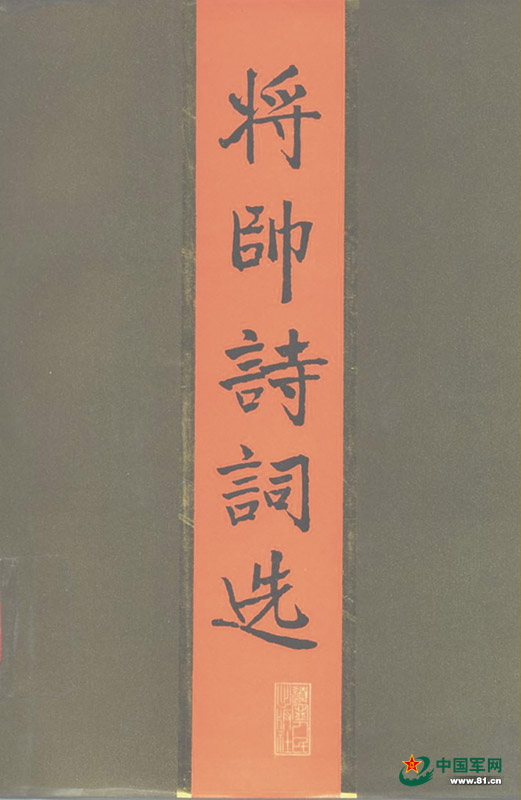 将帥詩詞选
中国军网
www.81.cn